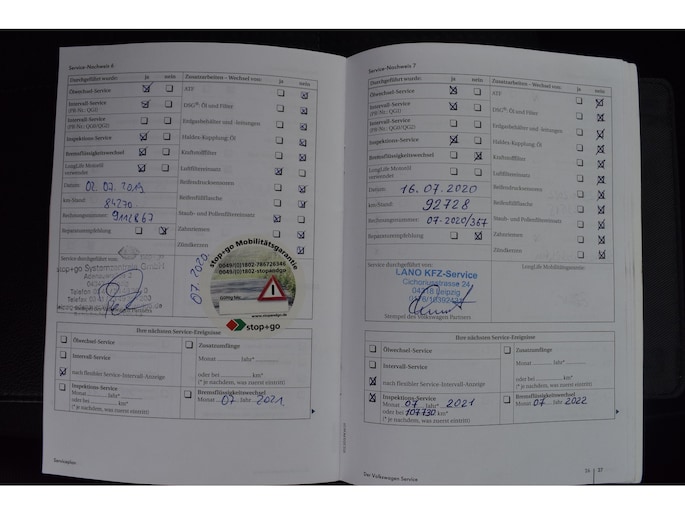 Service-Nachweis 6
Durchgeführt wurde: ja nein
Zusatzarbeiten – Wechsel von: ja nein
Ölwechsel-Service
ATF
Intervall-Service
(PR.Nr.: QG1)
DSG®: Öl und Filter
Intervall-Service
(PR.Nr.: QG0/QG2)
Erdgasbehälter und -leitungen
Inspektions-Service
Haldex-Kupplung: Öl
Bremsflüssigkeitswechsel
Kraftstofffilter
LongLife Motoröl
verwendet
Luftfiltereinsatz
Datum: 02.07.2019
Reifendichtmittel
km-Stand: 84270
Reifenfüllflasche
Rechnungsnummer:
Staub- und Pollenfiltereinsatz
Reparaturempfehlung
Zahnriemen
Zündkerzen
Service durchgeführt von:
stop+go Systemzentrale GmbH
07.2020
stop+go Mobilitätsgarantie
0049/(0)1802-786726346
0049/(0)1802-stopandgo
gültig bis:
www.stopandgo.de
stop+go
Ihre nächsten Service-Ereignisse
Ölwechsel-Service
Zusatzumfänge
Intervall-Service
Monat Jahr*
nach flexibler Service-Intervall-Anzeige
oder bei km*
(* je nachdem, was zuerst eintritt)
Inspektions-Service
Monat Jahr*
oder bei km*
(* je nachdem, was zuerst eintritt)
Bremsflüssigkeitswechsel
Monat 07 Jahr 2021
Serviceplan
Service-Nachweis 7
Durchgeführt wurde: ja nein
Zusatzarbeiten – Wechsel von: ja nein
Ölwechsel-Service
ATF
Intervall-Service
(PR.Nr.: QG1)
DSG®: Öl und Filter
Intervall-Service
(PR.Nr.: QG0/QG2)
Erdgasbehälter und -leitungen
Inspektions-Service
Haldex-Kupplung: Öl
Bremsflüssigkeitswechsel
Kraftstofffilter
LongLife Motoröl
verwendet
Luftfiltereinsatz
Datum: 16.07.2020
Reifendichtmittel
km-Stand: 92728
Reifenfüllflasche
Rechnungsnummer: 07-2020/367
Staub- und Pollenfiltereinsatz
Reparaturempfehlung
Zahnriemen
Zündkerzen
Service durchgeführt von:
LongLife Mobilitätsgarantie:
LANO KFZ-Service
Cichoriusstrasse 24
04318 Leipzig
Stempel des Volkswagen Partners
Ihre nächsten Service-Ereignisse
Ölwechsel-Service
Zusatzumfänge
Intervall-Service
Monat Jahr*
nach flexibler Service-Intervall-Anzeige
oder bei km*
(* je nachdem, was zuerst eintritt)
Inspektions-Service
Monat 07 Jahr* 2021
oder bei 107730 km*
(* je nachdem, was zuerst eintritt)
Bremsflüssigkeitswechsel
Monat 07 Jahr 2022
Der Volkswagen Service
36 37